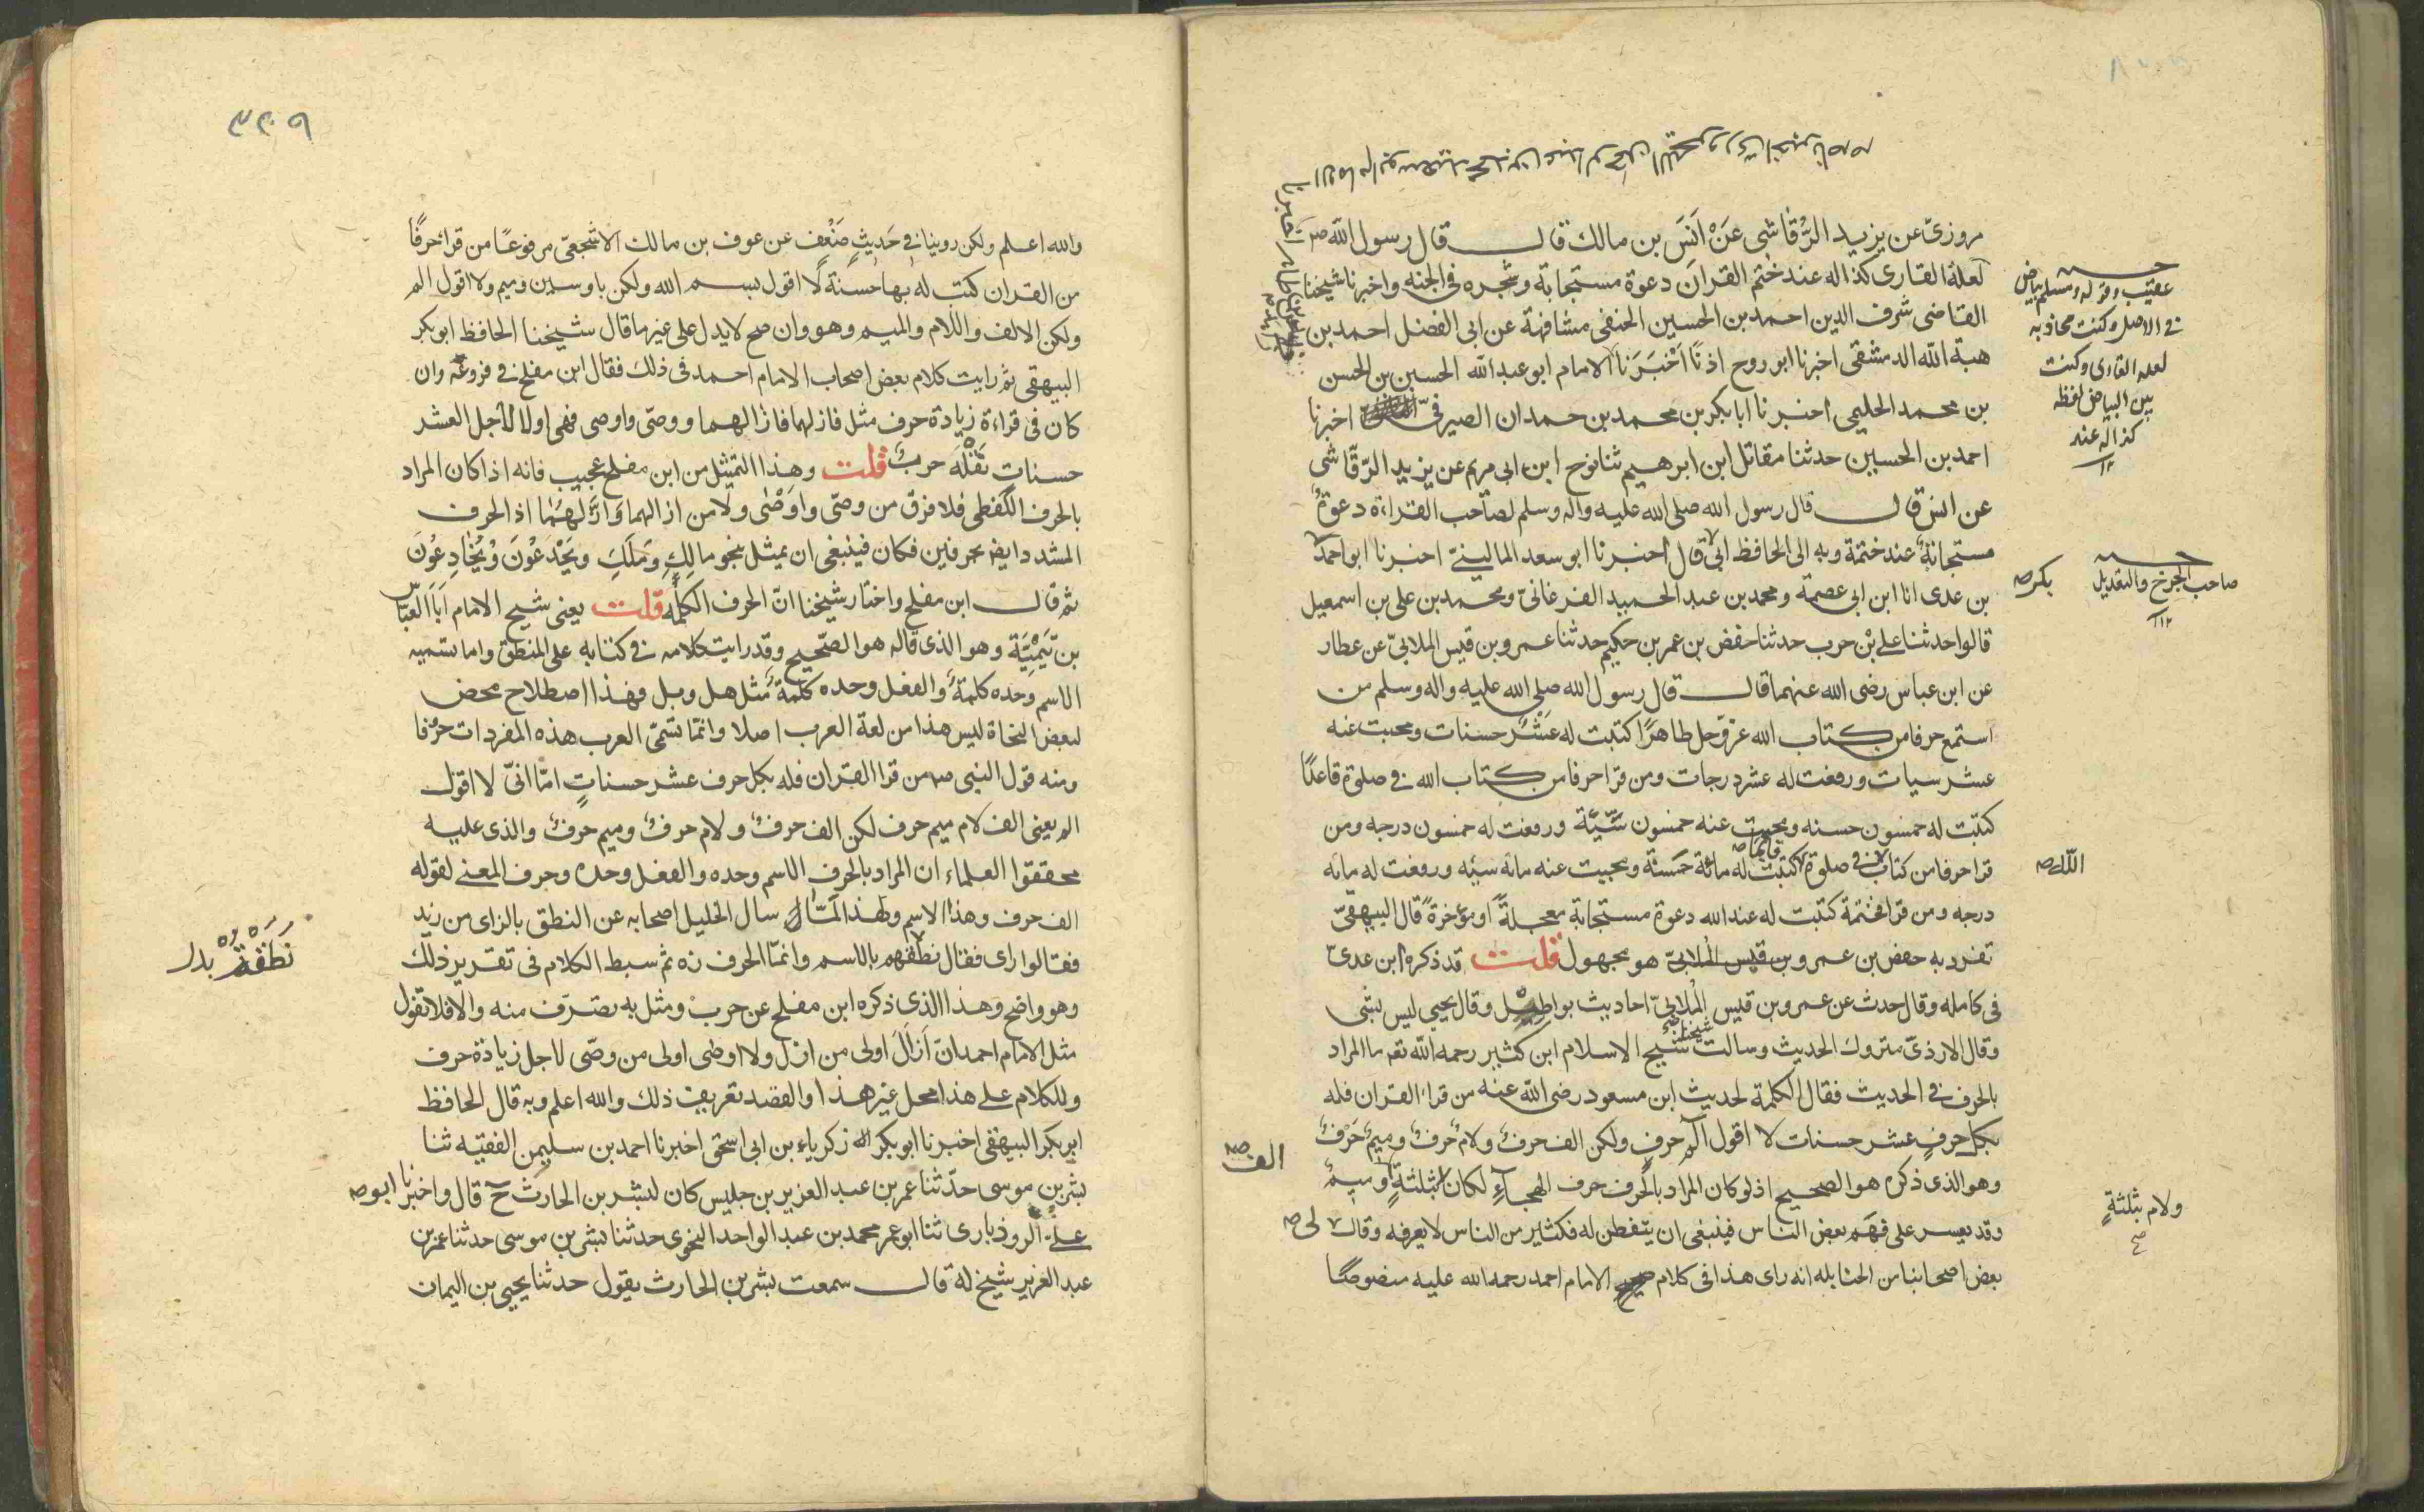 مروزىّ عن يزيد الرُّقاشى عَنْ اَنَسَ بن مالك قال قال رسول الله صم
لعلهُ القارى كذا له عند ختم القران دعوة مستجابة وشجره فى الجنه واخبرنا شيخنا
القاضى شرف الدين احمد بن الحسين الحنفى مشافهة عن ابى الفضل احمد بن
هبة الله الدمشقى اخبرنا ابو روح اذنًا اَخْبَرَنا الامام ابو عبد الله الحسين بن الحسن
بن محمد الحليمى اخبرنا ابا بكر بن محمد بن حمدان الصيرفىّ اخبرنا
احمد بن الحسين حدثنا مقاتل ابن ابرهيم ثنا نوح ابن ابى مريم عن يزيد الرّقاشى
عن انس قال قال رسول الله صلى الله عليه واله وسلم لصاحب القراءة دعوةٌ
مستجابةٌ عند ختمة وبه الى الحافظ ابى قال اخبرنا ابو سعد المالينىّ اخبرنا ابو احمد
بن عدى انا ابن ابى عصمة ومحمد بن عبد الحميد الفرغانىّ ومحمد بن على بن اسمعيل
قالوا حدثنا على بْن حرب حدثنا حفص بن عمر بن حكيم حدثنا عمرو بن قيس الملائىّ عن عطار
عن ابن عباس رضى الله عنهما قال قال رسول الله صلى الله عليه واله وسلم من
استمع حرفا من كتاب الله عزّوجل طاهرًا كتبت له عَشْرُ حسنات ومحيت عنه
عشر سيات ورفعت له عشر درجات ومن قرا حرفا من كتاب الله فى صلوة قاعدًا
كتبت له خمسون حسنه ومحيت عنه خمسون سّيّة ورفعت له خمسون درجه ومن
قرا حرفا من كتاب فى صلوة قائما كتبت له مائة حَسَنَة ومحيت عنه مائة سيئه ورفعت له مائه
درجه ومن قرا فختمة كتبت له عند الله دعوة مستجابة معجلةً او مؤخرةً قال البيهقىّ
تفرد به حفص بن عمرو بن قيس الْملائىّ هو مجهول قلت قد ذكره ابن عدىّ
فى كامله وقال حدث عن عمرو بن قيس الْملائىّ احاديث بواطيل وقال يحيى ليس بشى
وقال الازدىّ متروك الحديث وسالت شيخنا شيخ الاسلام ابن كثير رحمه الله تعه ما المراد
بالحرف فى الحديث فقال الكلمة لحديث ابن مسعود رضى الله عنه من قرا القران فله
بكل حرفٍ عشر حسنات لا اقول المۤ حرف ولكن الف حرفٌ ولامٌ حرفٌ وميمٌ حَرْفٌ
وهو الذى ذكره هو الصحيح اذ لو كان المراد بالحرف حرف الهجآءِ لكان بثلثةٍ وميمٌ
وقد يعسر على فهَم بعض الناس فينبغى ان يتّفطن له فكثير من الناس لا يعرفه وقال لى صه
بعض اصحابنا من الحنابله انه راى هذا فى كلام الامام احمد رحمه الله عليه منصوصًا
عقيب وقوله ومسلم بياض
فى الاصل وكتبت محاذ به
لعله القارى وكتبت
بين البياض لفظه
كذا له عند
١٢
صاحب الجرح والتعديل
١٢
بكر صه
الله صه
الف صه
ولام بثلثةٍ
صح
والله اعلم ولكن روينا فى حَديثٍ ضَعْف عن عوف بن مالك الاشجعىّ مرفوعًا من قرا حرفًا
من القران كتب له بها حَسنَة لا اقول بسم الله ولكن با وسين وميم ولا اقول الم
ولكن الالف واللام والميم وهو وان صح لا يدل على غير ما قال شيخنا الحافظ ابو بكر
البيهقى ثم رايت كلام بعض اصحاب الامام احمد فى ذلك فقال ابن مفلح فى فروعه وان
كان فى قراءة زيادة حرف مثل فازلهما فازالهما ووصّى واوصى فهى اولا لاجل العشر
حسنات نَقَلَه حربٌ قلت وهذا التمثيل من ابن مفلح عجيب فانه اذا كان المراد
بالحرف اللَّفظى فلا فرق من وصّى واوَصْى ولا من ازالهما وَازَّلهمَا اذ الحرف
المشدد ايضا بحرفين فكان فينبغى ان يمثل بنحو مالِكِ وَمَلِكِ ويَخْدَعُونَ وُيُخادِعُونَ
ثم قال ابن مفلح واختار شيخنا انّ الحرف الكلمة قلت يعنى شيح الامام اَبَا العَبّاس
بن تَيْمِيَّة وهو الذى قاله هو الصّحيح وقد رايت كلامه فى كتابه على المنطق واما تسميه
الاسم وَحده كلمةً والفعل وحده كلمةً مثل هل وبل فهذا اصطلاح محض
لبعض النحاة ليس هذا من لغة العرب اصلا وانمّا تسمّى العرب هذه المفردات حرْفا
ومنه قول النبى صم من قرا القران فله بكل حرف عشر حسناتٍ امّا انّى لا اقول
الم يعنى الف لام ميم حرف لكن الف حرفٌ ولام حرفٌ وميم حرفٌ والذى عليه
محققوا العلماء ان المراد بالحرف الاسم وحده والفعل وحده وحرف المعنى لقوله
الف حرف وهذا الاسم ولهذا لمّا سال الخليل اصحابه عن النطق بالزاى من زيد
فقالوا زاى فقال نطقتم بالاسم وانمّا الحرف زه ثم سبط الكلام فى تقرير ذلك
وهو واضح وهذا الذى ذكره ابن مفلح عن حربْ ومثل به تصَرّف منه والا فلا تقول
مثل الامام احمد ان اَزَالَ اولى من ازل ولا اوصى اولى من وصّى لاجل زيادة حرف
وللكلام على هذا محل غير هذا والقصد تعريف ذلك والله اعلم وبه قال الحافظ
ابو بكر البيهقى اخبرنا ابو بكر زكرياء بن ابى اسحق اخبرنا احمد بن سليمن الفقيه ثنا
بشر بن موسى حدّثنا عمر بن عبد العزيز بن جليس كان لبشر بن الحارث ح قال واخبرنا ابو صه
على الروذبارى ثنا ابو عمر محمد بن عبد الواحد النحوى حدثنا بشر بن موسى حدثنا عمر بن
عبد العزيز شيخ له قال سمعت بشر بن الحارث يقول حدثنا يحيى بن اليمان
بدل